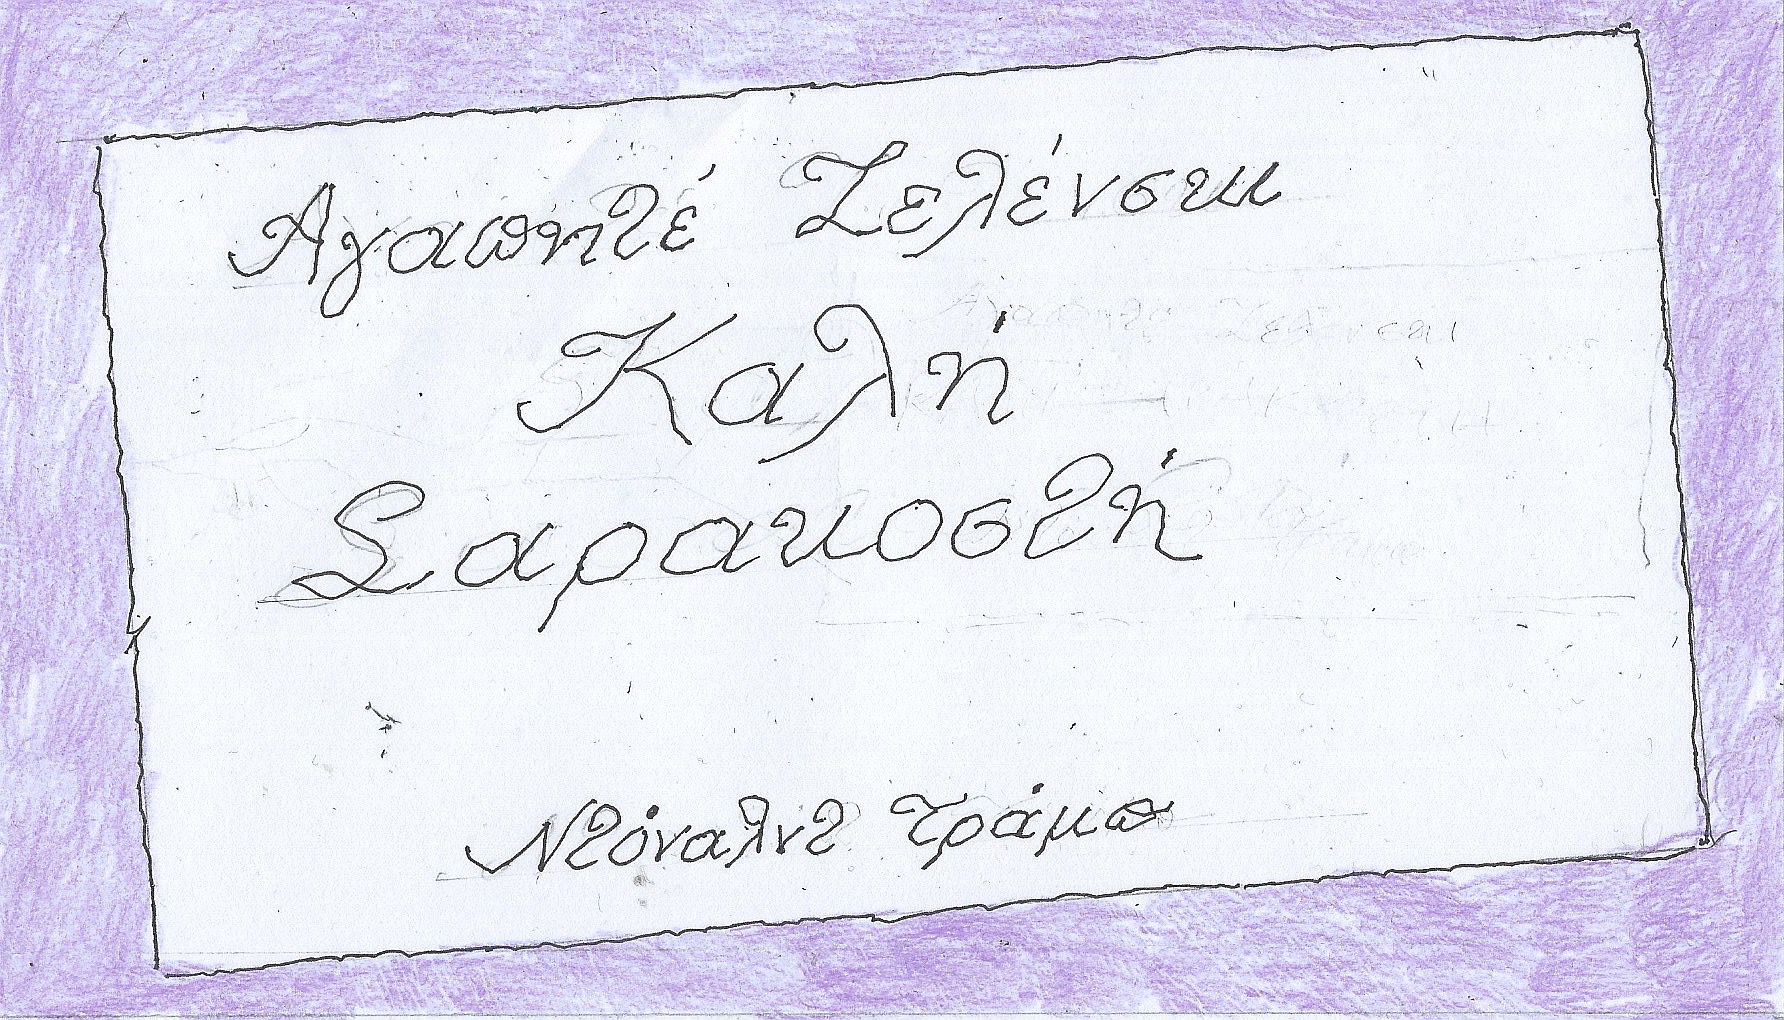 Αγαπητέ Ζελένσκι
Καλή
Σαρακοστή
Ντόναλντ Τράμπ